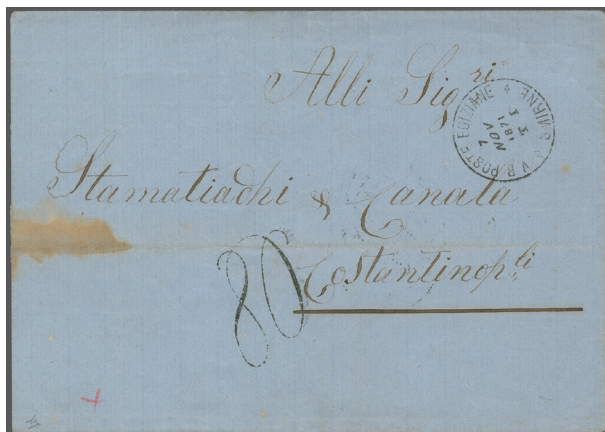 Alli Sigri
V. R. POSTE EGIZIANE * SMIRNE
7
NOV
1871
Stamatiadhi & Canala
Costantinopli
80